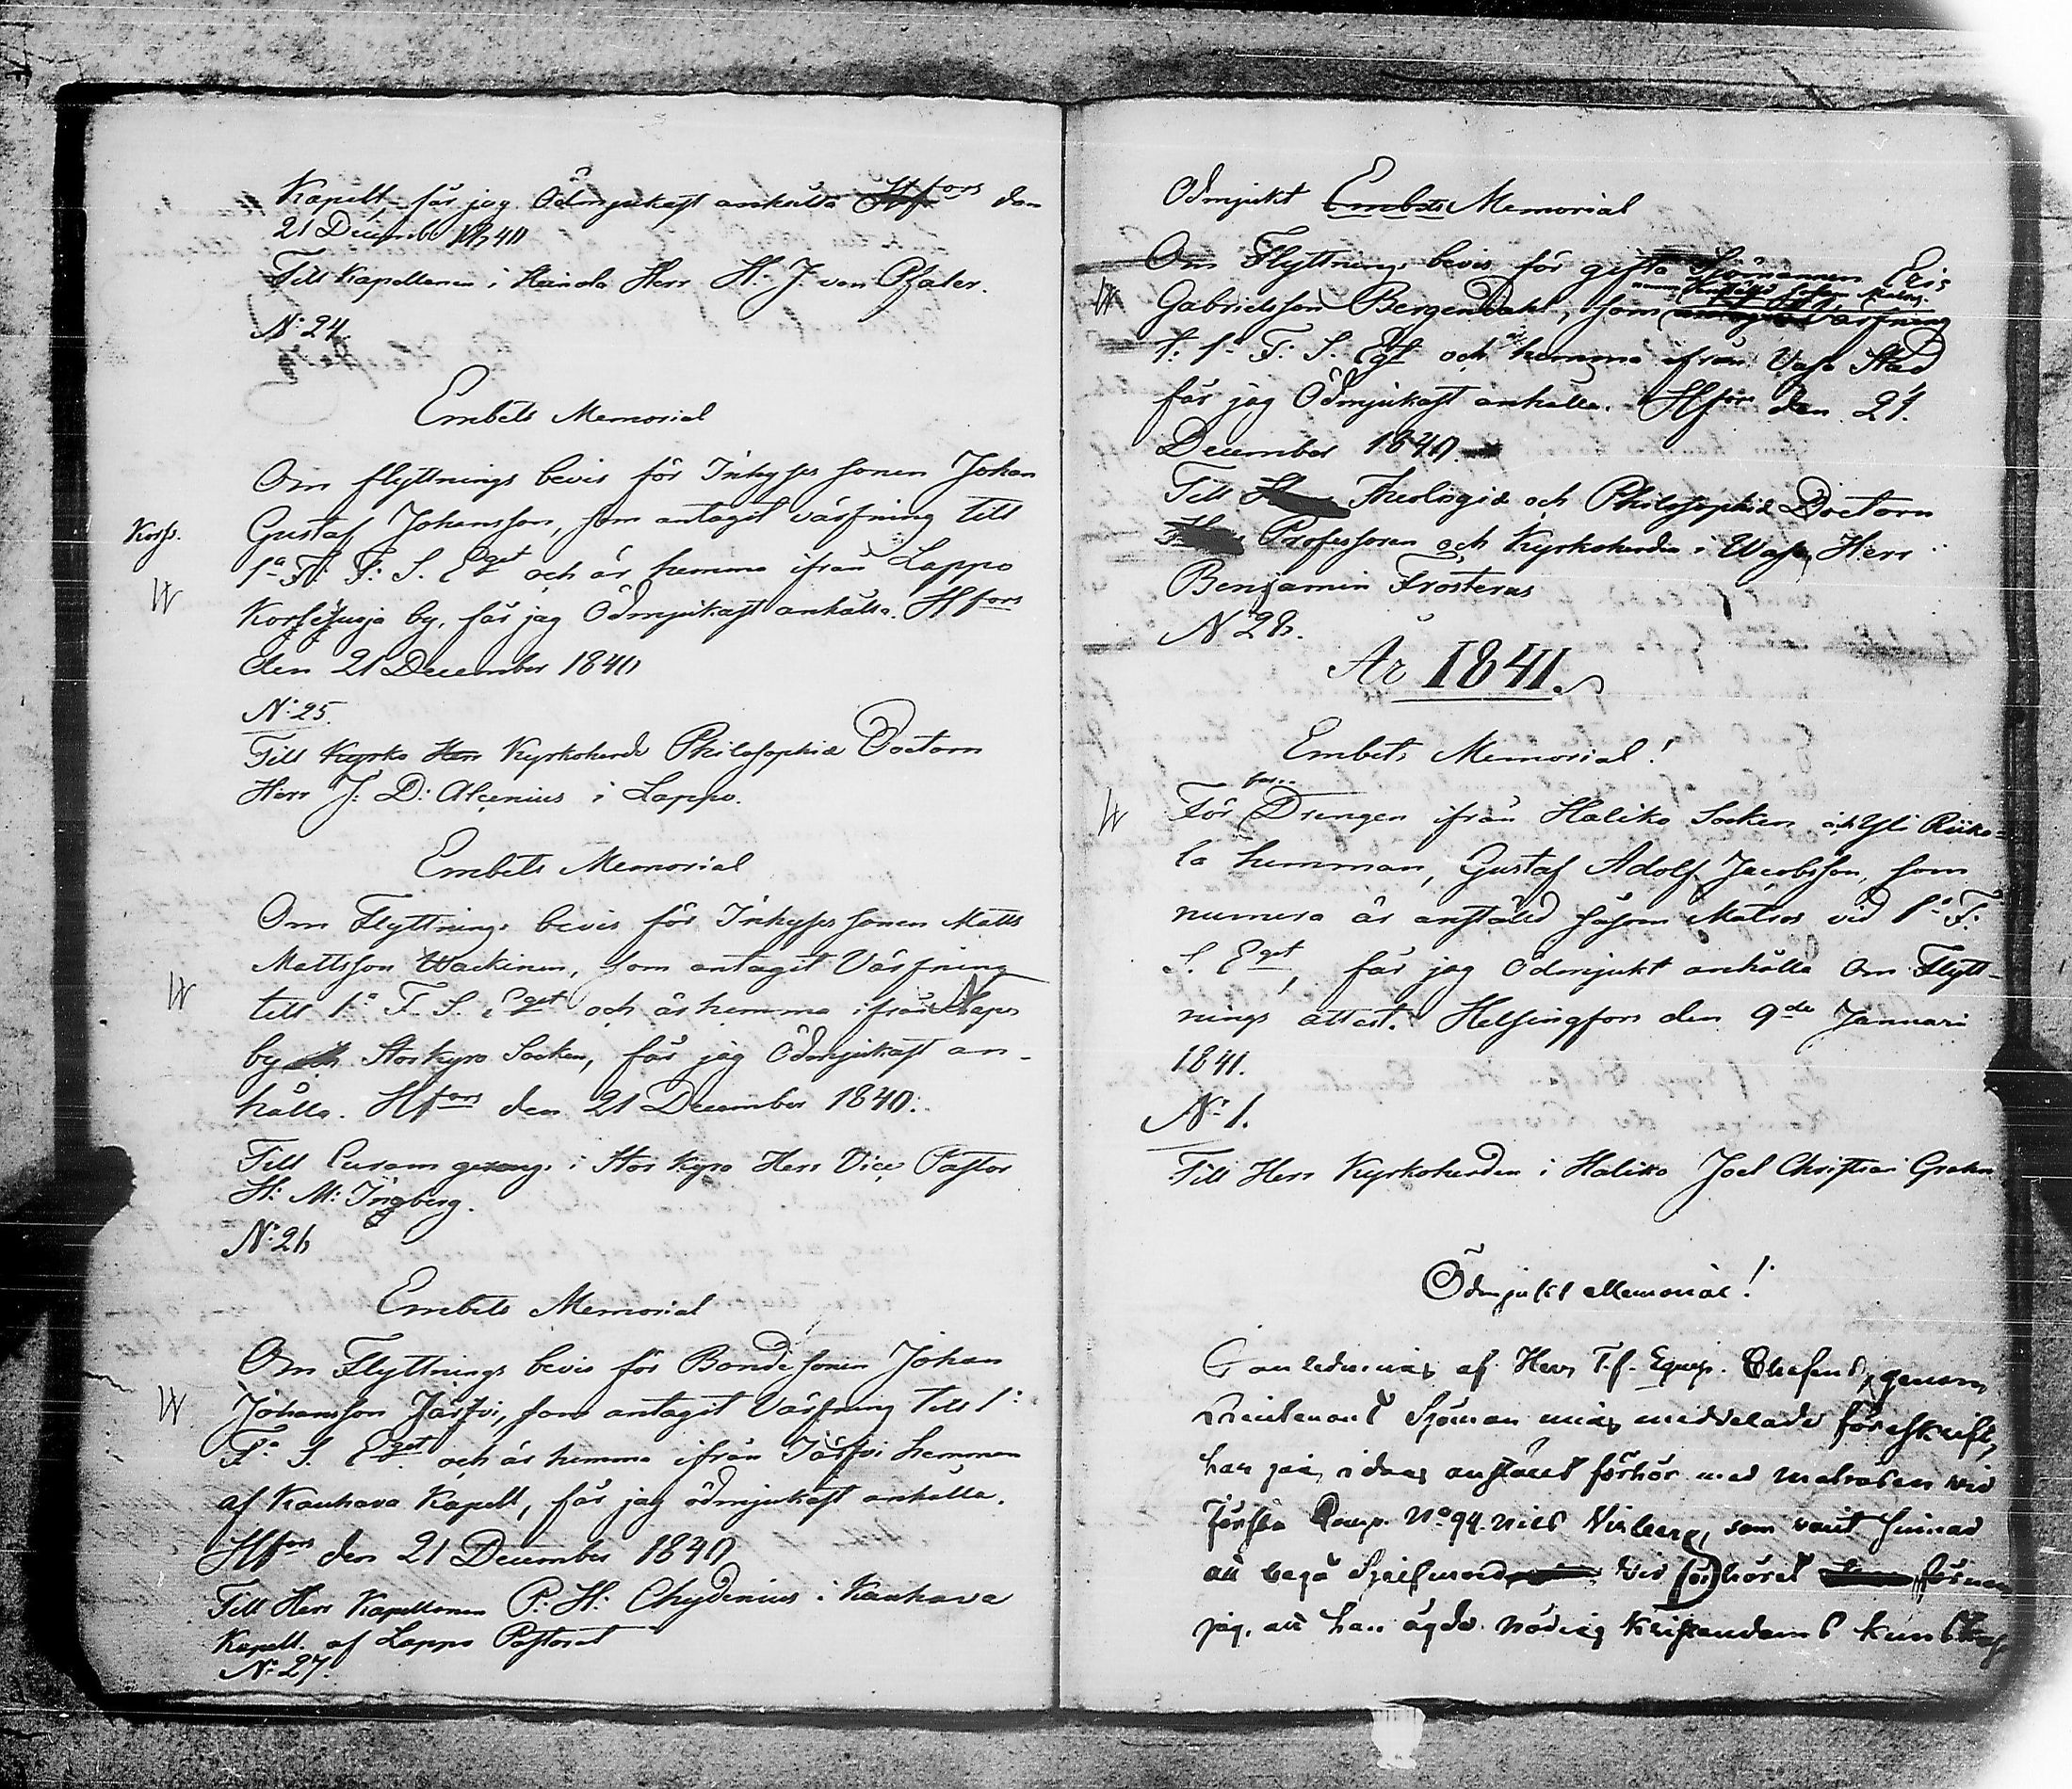 Kapell, får jag Ödmjukast anhålla Hfors den
21 Decembr 1840
Till Kapellanen i Heinola Herr H: J. von Pfaler.
N: 24.
Embets Memorial
Om flyttnings bevis för Inhyses sonen Johan
Korss.
Gustaf Johansson, som antagit värfning till
1a F: F: S. Eqet och är hemma ifrån Lappo
by, får jag Ödmjukast anhålla. Hfors
den 21 December 1840
N: 25.
Till Kyrko Herr Kyrkoherde Philosophiæ Doctorn
Herr J: D: Alcenius i Lappo.
Embets Memorial
Om Flyttnings bevis för Inhyses sonen Matts
Mattsson Wackinen, som antagit Värfning
till 1a F. S. Eqet och är hemma ifrån
by Storkyro Socken, får jag Ödmjukast an-
hålla. Hfors den 21 December 1840.
Till Curam gerens i Stor Kyro Herr Vice Pastor
H: M: Ingberg.
N: 26
Embets Memorial
Om Flyttnings bevis för Bondesonen Johan
Johansson Järfvi, som antagit Värfning till 1a
F: S. Eqet och är hemma ifrån Järfvi hemman
af Kauhava Kapell, får jag ödmjukast anhålla.
Hfors den 21 December 1840
Till Herr Kapellanen P. H: Chydenius i Kauhava
Kapell af Lappo Pastorat
N: 27.
Odmjukt Embets Memorial
Om Flyttnings bevis för gifta Sjömannen Eric
Gabrielsson Bergendahl, som Värfning
t. 1a F: S. Eqt och är hemma ifrån Vasa Stad
får jag Ödmjukast anhålla. Hfors den 24.
December 1840.
Till Theologiæ och Philosophiæ Doctorn
Professoren och Kyrkoherden i Wasa, Herr
Benjamin Frosterus
N 28.
År 1841.
Embets Memorial!
För Drengen ifrån Haliko Socken och Yli Riiko-
la hemman, Gustaf Adolf Jacobsson, som
numera är anstäld såsom Matros vid 1a F:
S. Eqet, får jag ödmjukt anhålla Om Flytt-
nings attest. Helsingfors den 9de Januari
1841.
N: 1.
Till Herr Kyrkoherden i Haliko Joel Christian Grahn
Ödmjukt Memorial!
I anledning af Herr T.f. Equip. Chefens, genom
Lieutenant Sjöman mig meddelade föreskrift,
har jag i dag anstält förhör med matrosen vid
första Comp. No 94. Nils som varit sinnad
att begå Sjelfmord vid förhöret förnam
jag, att han ägde nödig Kristendoms kunskap